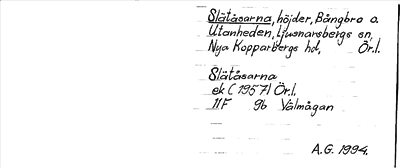 Slätåsarna, höjder, Bångbro o.
Utanheden, Ljusnarsbergs sn,
Nya Kopparbergs hd, Ör.l.
Slätåsarna
ek (1957) Ör.l.
11F 9b Välmågan
A.G. 1994.